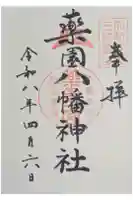 奉拝
薬園八幡神社
令和八年四月六日